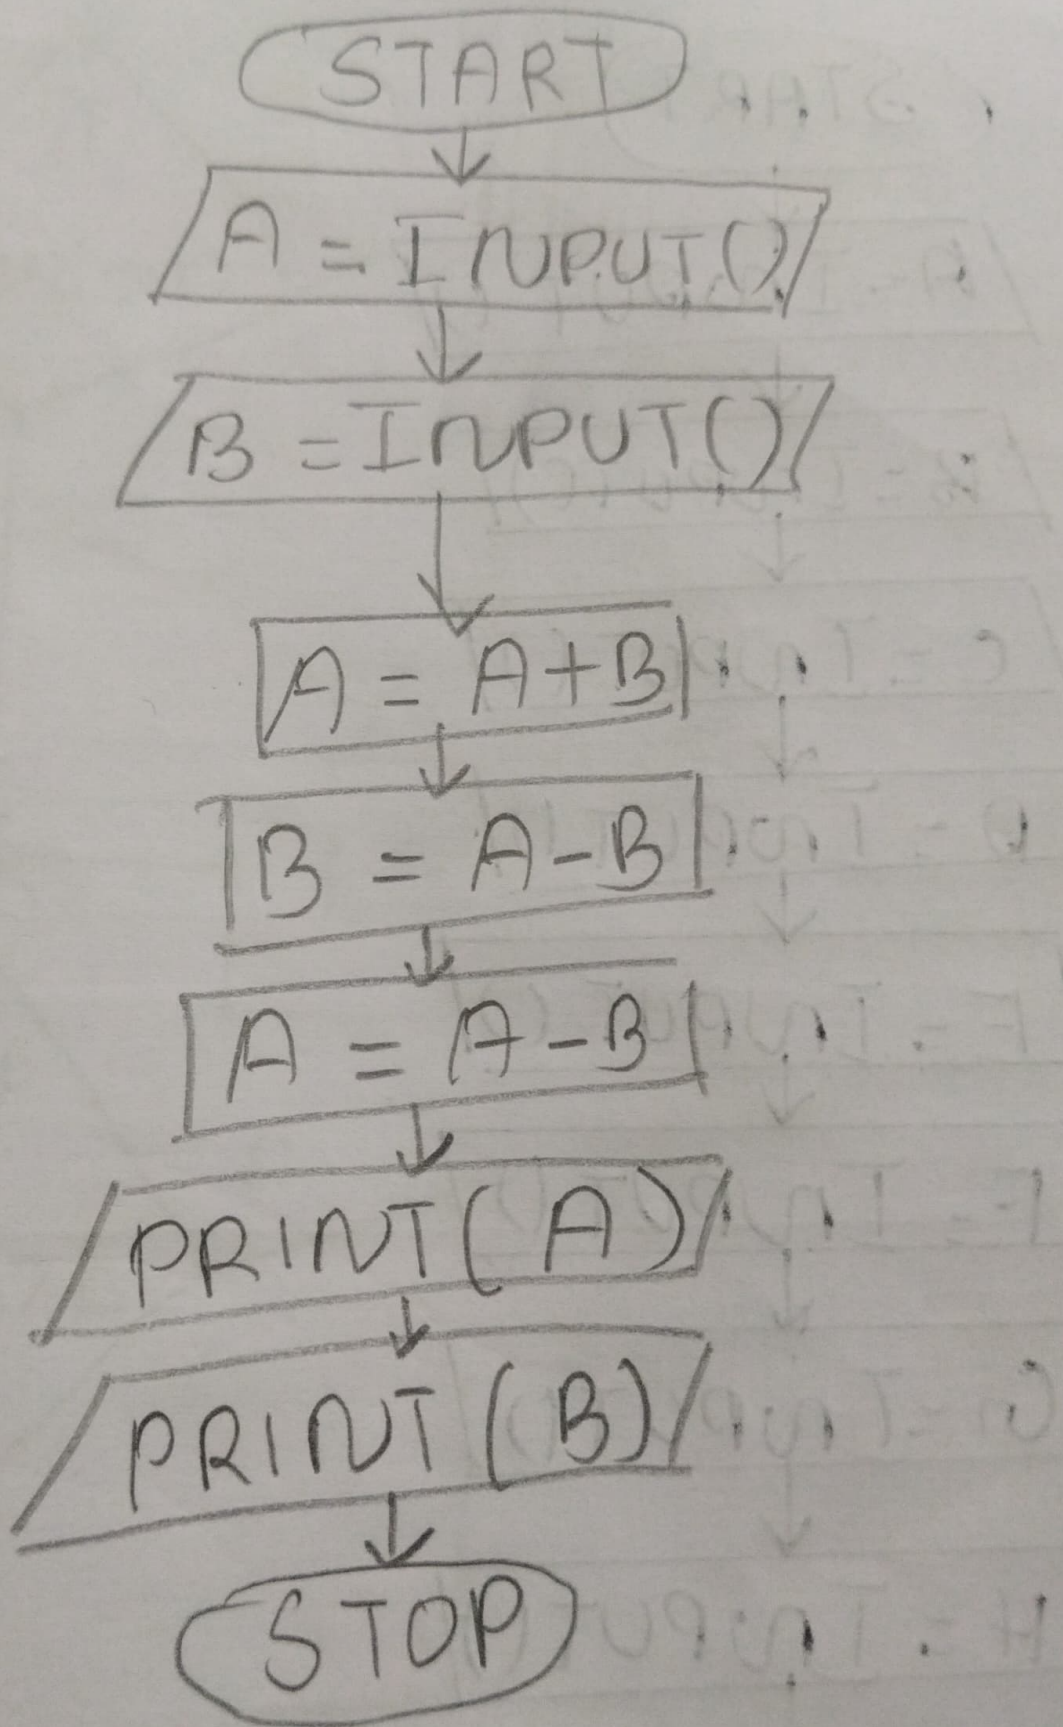 START
A = INPUT()
B = INPUT()
A = A+B
B = A-B
A = A-B
PRINT(A)
PRINT(B)
STOP